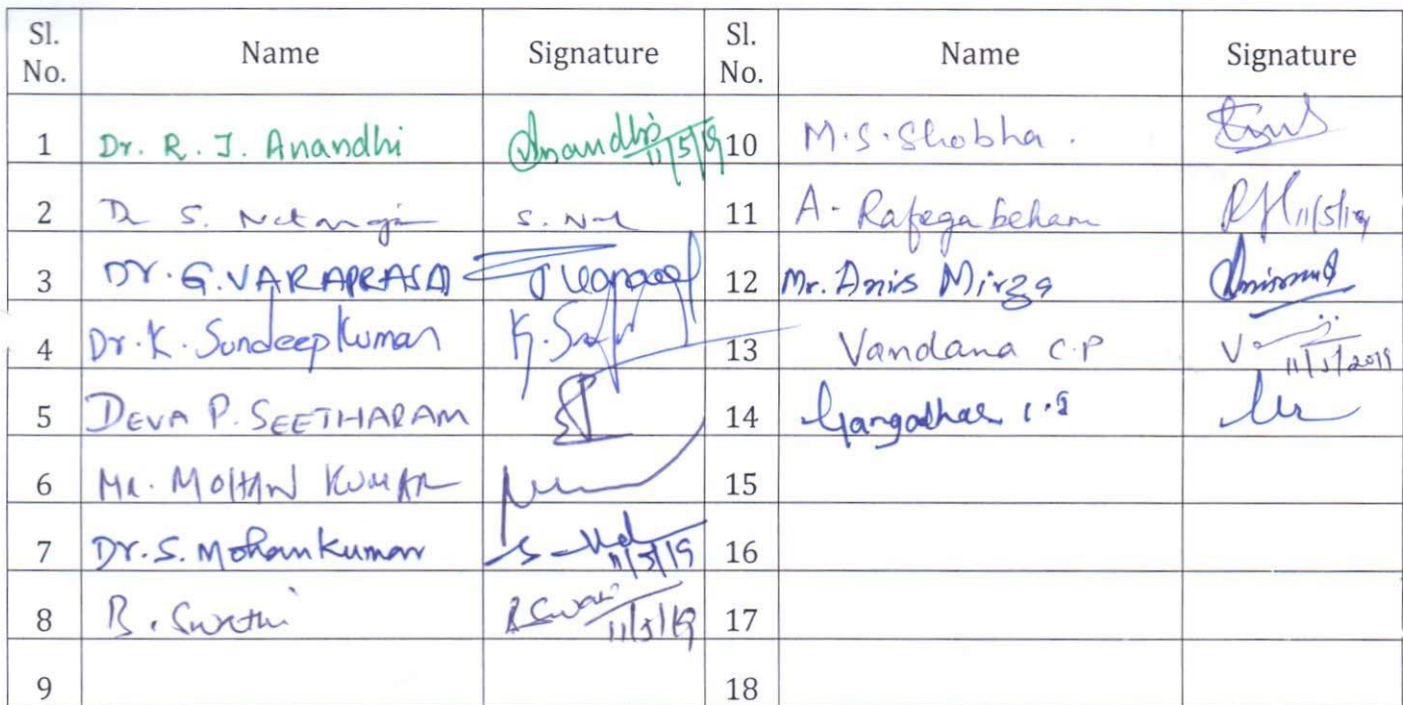 Sl. No. Name Signature Sl. No. Name Signature
1 Dr. R. J. Anandhi Anandhi 11/5/19 10 M.S. Shobha .
2 S. 11 A. Rafega beham 11/5/19
3 Dr. G. VARAPRASAD 12 Mr. Anis Mirza
4 Dr. K. Sundeep Kumar 13 Vandana C.P 11/5/2019
5 DEVA P. SEETHARAM 14 Gangadhar
6 Mr. MOHAN KUMAR 15
7 Dr. S. Mohan Kumar 11/5/19 16
8 B. Swathi 11/5/19 17
9 18